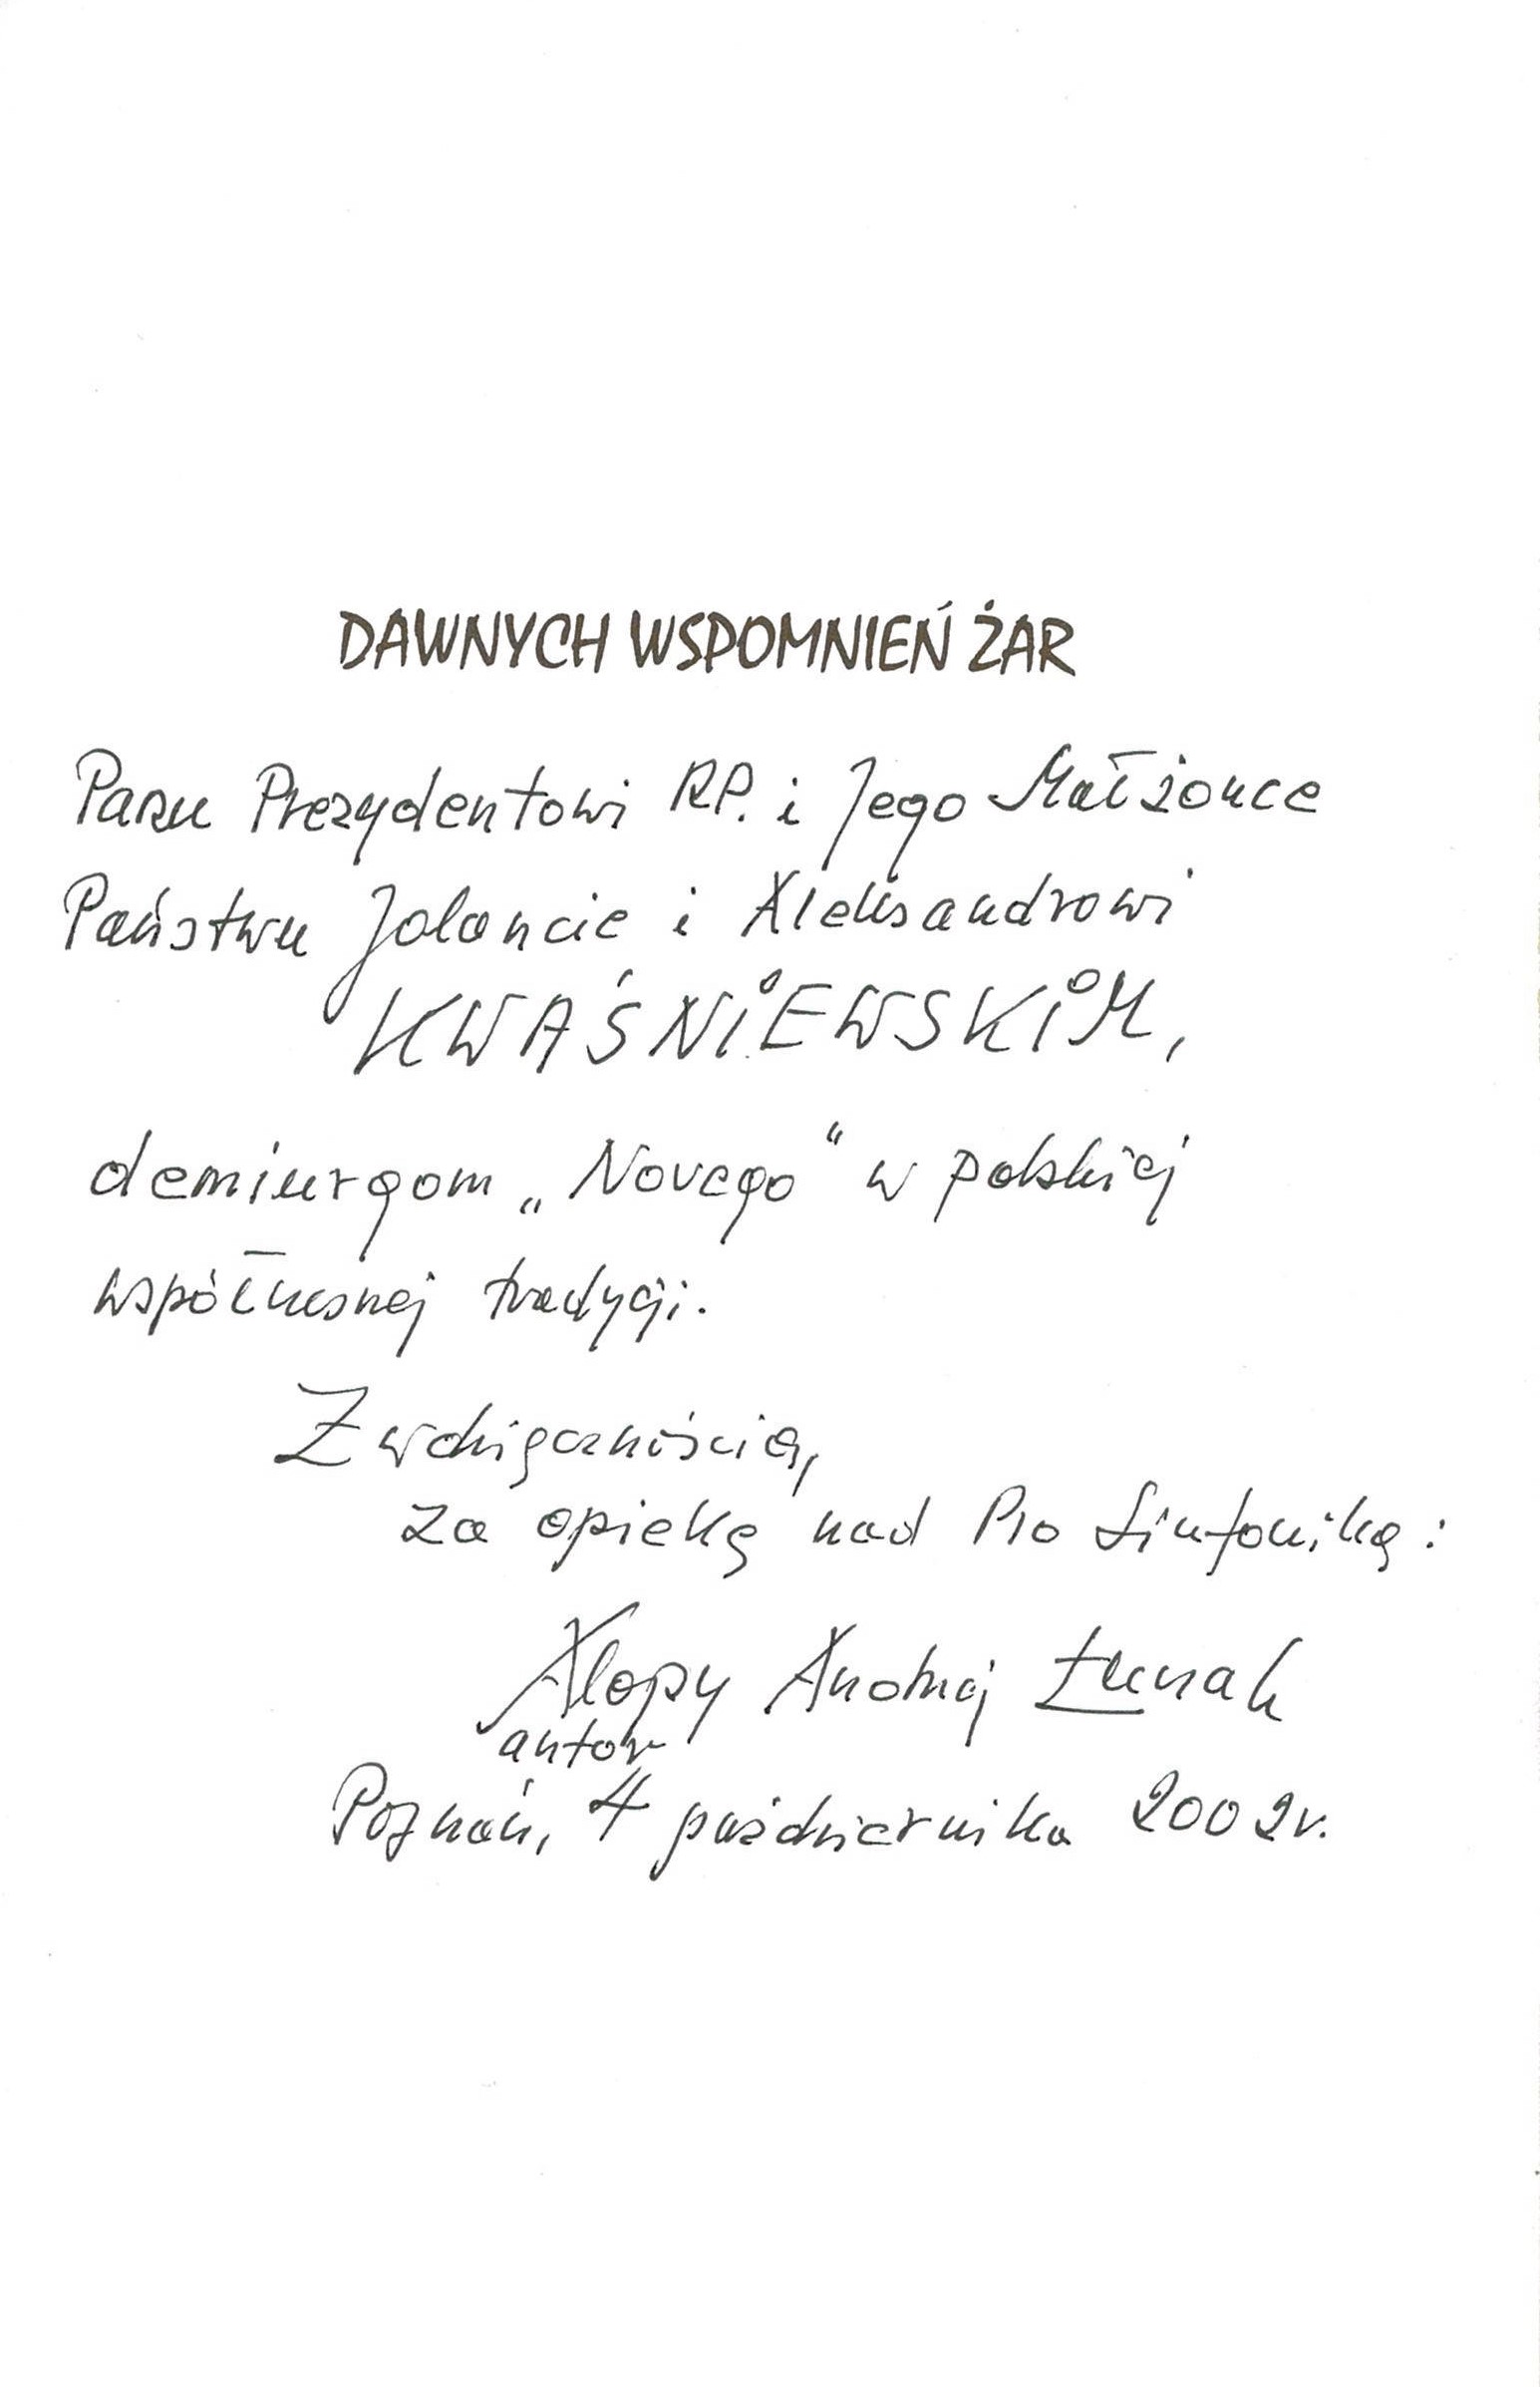 DAWNYCH WSPOMNIEŃ ŻAR
Panu Prezydentowi RP. i Jego Małżonce
Państwu Jolancie i Aleksandrowi
KWAŚNIEWSKIM,
demiurgom „Novego" w polskiej
współczesnej tradycji.
Z wdzięcznością,
za opiekę nad Pro Sinfoniką:
Alojzy Andrzej Łuczak
autor
Poznań, 4 października 2002r.